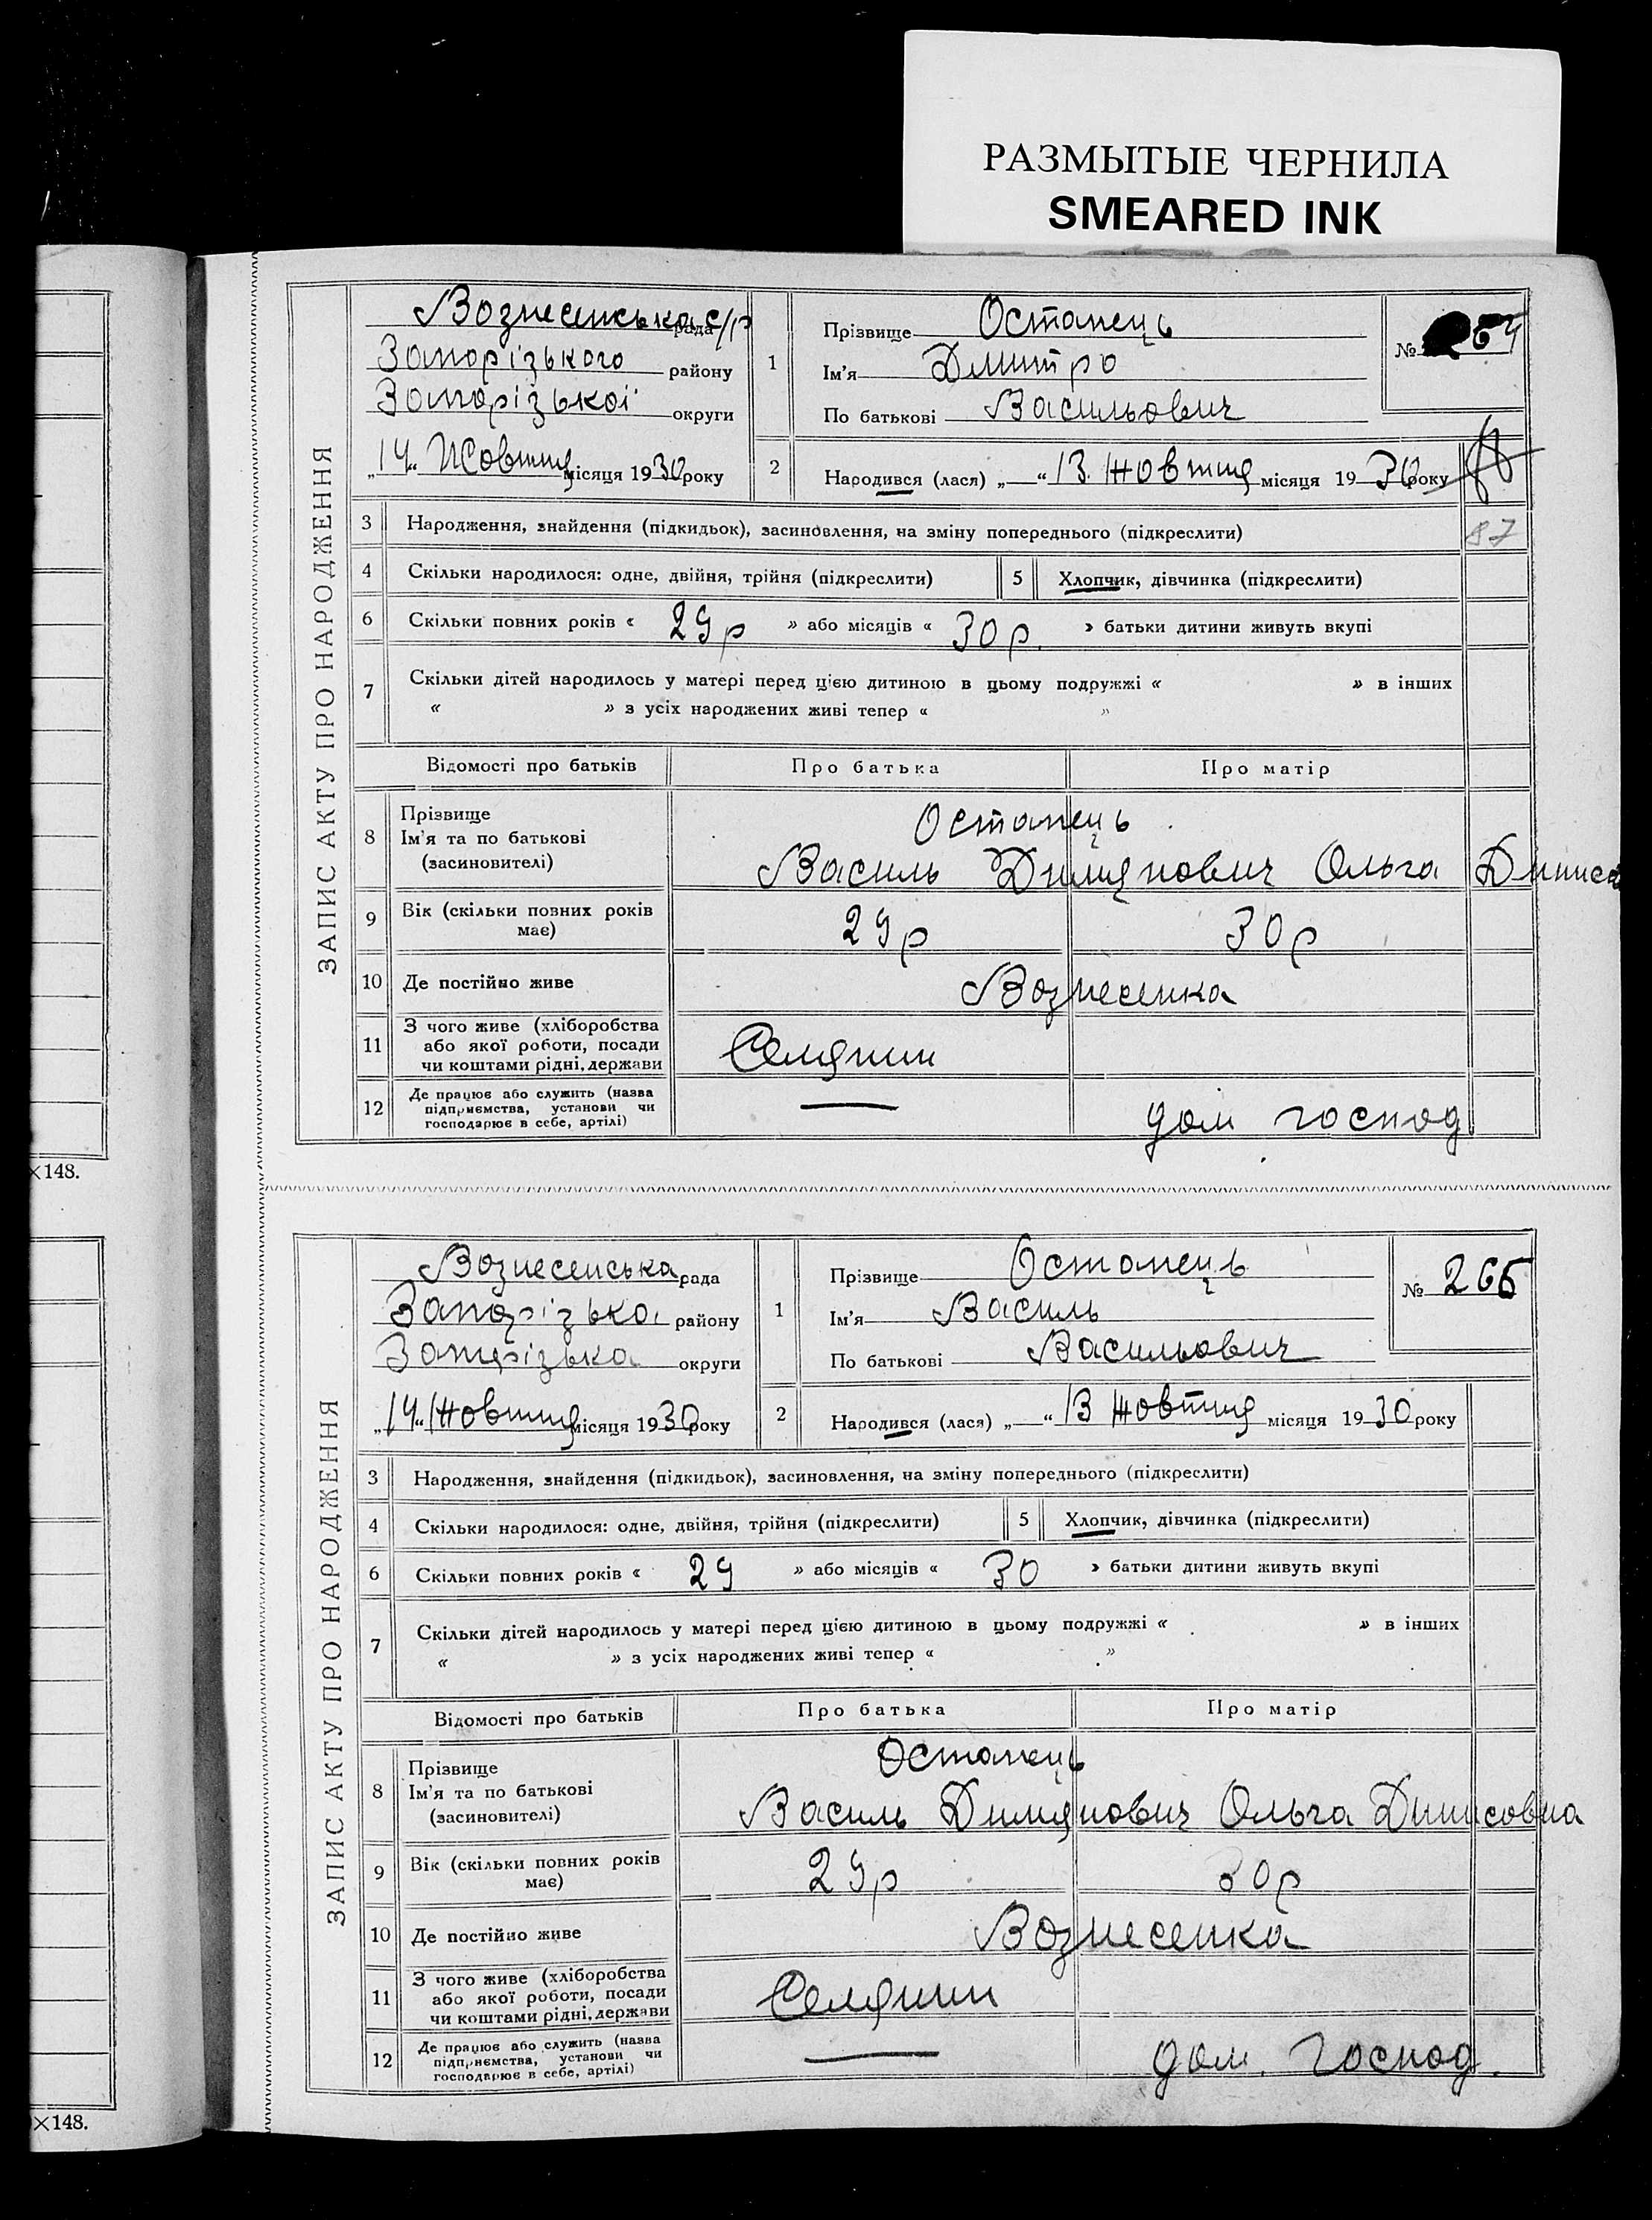 РАЗМЫТЫЕ ЧЕРНИЛА
SMEARED INK
ЗАПИС АКТУ ПРО НАРОДЖЕННЯ
Вознесенська с/р рада
Запорізького району
Запорізької округи
„14“ Жовтня місяця 1930 року
1 Прізвище Остапець
Ім'я Дмитро
По батькові Васильович
№ 64
2 Народився (лася) „ “ 13 Жовтня місяця 1930 року
87
3 Народження, знайдення (підкидьок), засиновлення, на зміну попереднього (підкреслити)
4 Скільки народилося: одне, двійня, трійня (підкреслити) 5 Хлопчик, дівчинка (підкреслити)
6 Скільки повних років « 29 р » або місяців « 30 р. » батьки дитини живуть вкупі
7 Скільки дітей народилось у матері перед цією дитиною в цьому подружжі « » в інших
« » з усіх народжених живі тепер « »
Відомості про батьків Про батька Про матір
8 Прізвище
Ім'я та по батькові
(засиновителі)
Остапець
Василь Димянович Ольга Динисо
9 Вік (скільки повних років
має) 29 р 30 р
10 Де постійно живе Вознесенка
11 З чого живе (хліборобства
або якої роботи, посади
чи коштами рідні, держави
Селянин
12 Де працює або служить (назва
підприємства, установи чи
господарює в себе, артілі)
— дом господ
×148.
ЗАПИС АКТУ ПРО НАРОДЖЕННЯ
Вознесенська рада
Запорізька району
Запорізька округи
„14“ Жовтня місяця 1930 року
1 Прізвище Остапець
Ім'я Василь
По батькові Васильович
№ 265
2 Народився (лася) „ “ 13 Жовтня місяця 1930 року
3 Народження, знайдення (підкидьок), засиновлення, на зміну попереднього (підкреслити)
4 Скільки народилося: одне, двійня, трійня (підкреслити) 5 Хлопчик, дівчинка (підкреслити)
6 Скільки повних років « 29 » або місяців « 30 » батьки дитини живуть вкупі
7 Скільки дітей народилось у матері перед цією дитиною в цьому подружжі « » в інших
« » з усіх народжених живі тепер « »
Відомості про батьків Про батька Про матір
8 Прізвище
Ім'я та по батькові
(засиновителі)
Остапець
Василь Димянович Ольга Динисовна
9 Вік (скільки повних років
має) 29 р 30 р
10 Де постійно живе Вознесенка
11 З чого живе (хліборобства
або якої роботи, посади
чи коштами рідні, держави
Селянин
12 Де працює або служить (назва
підприємства, установи чи
господарює в себе, артілі)
— дом. господ.
×148.